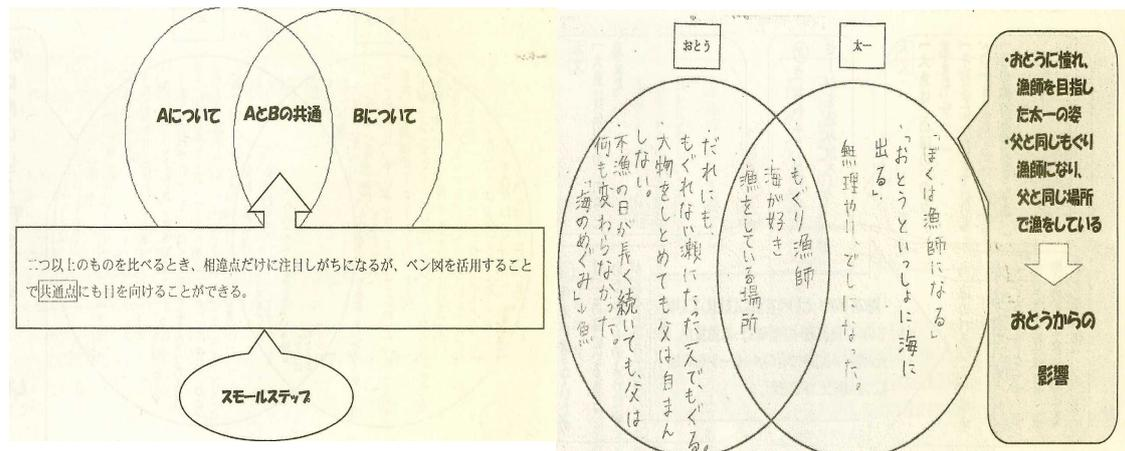 Aについて
AとBの共通
Bについて
二つ以上のものを比べるとき、相違点だけに注目しがちになるが、ベン図を活用すること
で共通点にも目を向けることができる。
スモールステップ
おとう
太一
「ぼくは漁師になる」
「おとうといっしょに海に
出る」
無理やり、でしになった。
・もぐり漁師
海が好き
漁をしている場所
・だれにも、
もぐれない瀬にたった一人で、もぐる。
大物をしとめても父は自まん
しない。
不漁の日が長く続いても、父は
何も変わらなかった。
「海のめぐみ」→魚
・おとうに憧れ、
漁師を目指し
た太一の姿
・父と同じもぐり
漁師になり、
父と同じ場所
で漁をしている
おとうからの
影響